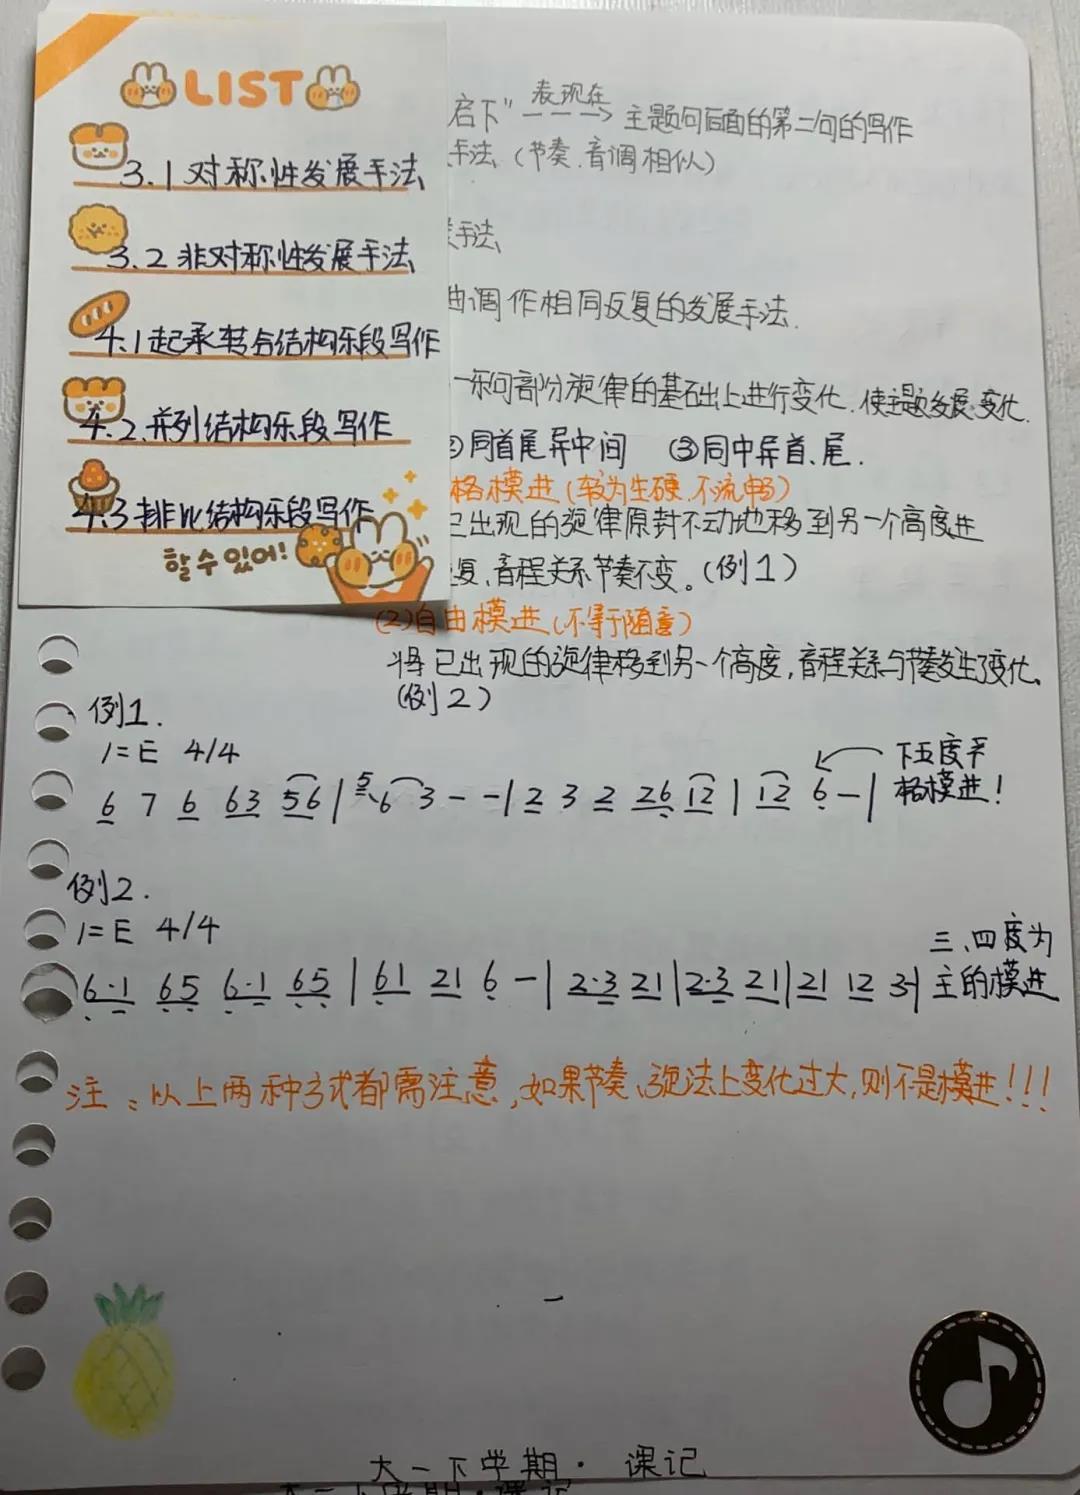 LIST
3.1对称性发展手法
3.2非对称性发展手法
4.1起承转合结构乐段写作
4.2.并列结构乐段写作
4.3排比结构乐段写作
할 수 있어!
启下" 表现在 主题句后面的第二句的写作
手法(节奏.音调相似)
手法
曲调作相同反复的发展手法.
一乐句部分旋律的基础上进行变化.使主题发展.变化.
②同首尾异中间 ③同中异首、尾.
格模进(较为生硬.不流畅)
已出现的旋律原封不动地移到另一个高度进
复,音程关系节奏不变。(例1)
(2)自由模进(不等于随意)
将已出现的旋律移到另一个高度,音程关系与节奏发生了变化。
(例2)
例1.
1=E 4/4
6 7 6 63 56 | 5 6 3 - - | 2 3 2 26 12 | 12 6 - |
下五度平
格模进!
例2.
1=E 4/4
6·1 65 6·1 65 | 61 21 6 - | 2·3 21 | 2·3 21 | 21 12 3 |
三、四度为
主的模进
注:以上两种方式都需注意,如果节奏、旋法上变化过大,则不是模进!!!
大一下学期·课记
大一下学期·课记